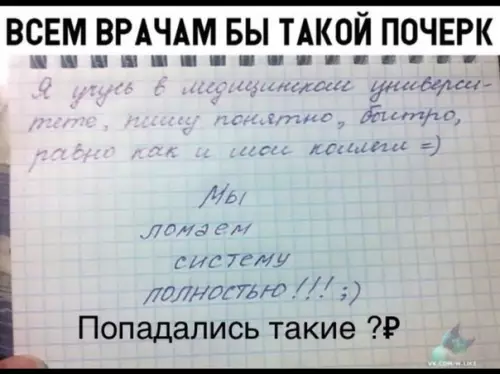 ВСЕМ ВРАЧАМ БЫ ТАКОЙ ПОЧЕРК
Я учусь в медицинском универси-
тете, пишу понятно, быстро,
равно как и мои коллеги =)
Мы
ломаем
систему
полностью!!! ;)
Попадались такие ?₽